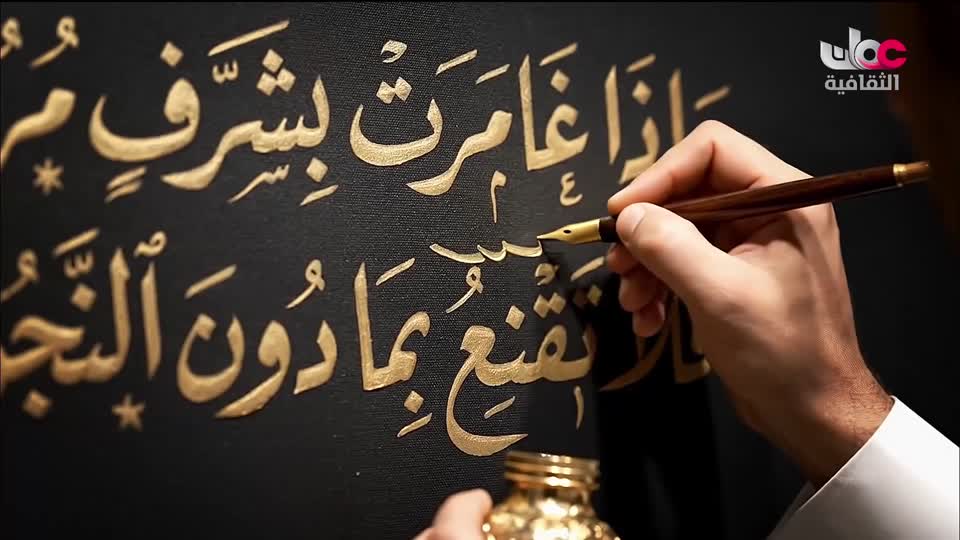 عمان
الثقافية
إذا غامرت بشرفٍ
تقنع بما دون النجو